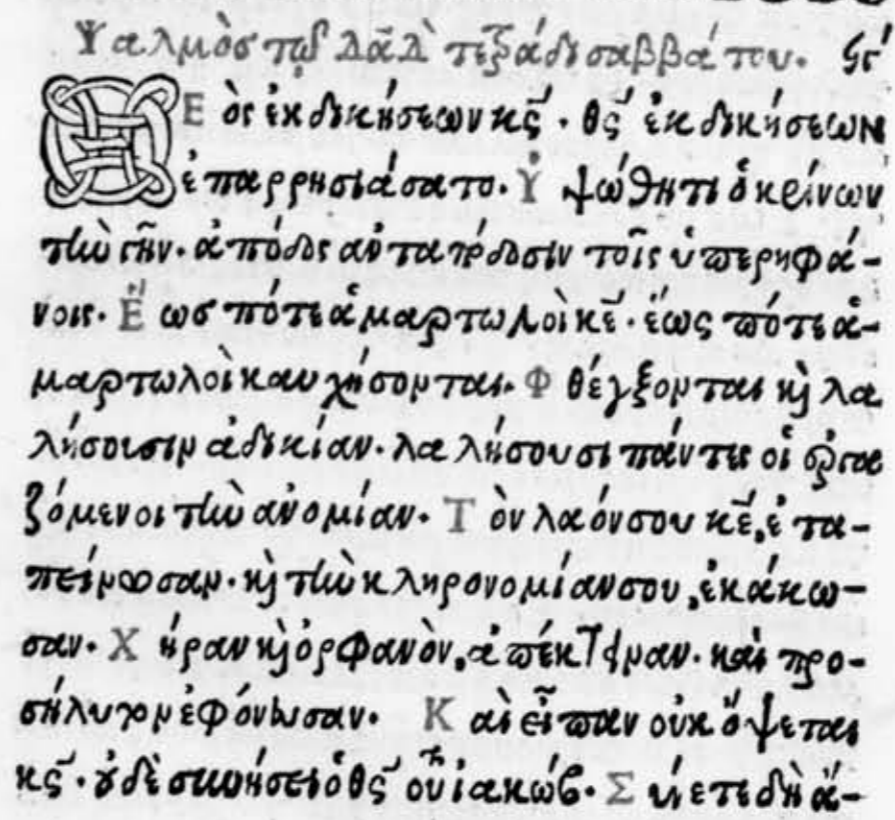 Ψαλμὸς τῷ Δαδ̀ τετράδι σαββάτου. ϟγ΄
Θεὸς ἐκδικήσεων κς̄. θς̄ ἐκδικήσεων
ἐπαρρησιάσατο. Ὑψώθητι ὁ κρίνων
τὴν γῆν. ἀπόδος ἀνταπόδοσιν τοῖς ὑπερηφά-
νοις. Ἕως πότε ἁμαρτωλοὶ κε̄. ἕως πότε ἁ-
μαρτωλοὶ καυχήσονται. Φθέγξονται κ̀ λα
λήσουσιν ἀδικίαν. λαλήσουσι πάντες οἱ ἐργα
ζόμενοι τὴν ἀνομίαν. Τὸν λαόν σου κε̄, ἐτα-
πείνωσαν. κ̀ τὴν κληρονομίαν σου, ἐκάκω-
σαν. Χήραν κ̀ ὀρφανὸν, ἀπέκτειναν. καὶ προ-
σήλυτον ἐφόνευσαν. Καὶ εἶπαν οὐκ ὄψεται
κς̄. οὐδὲ συνήσει ὁ θς̄ τοῦ ἰακώβ. Σύνετε δὴ ἄ-